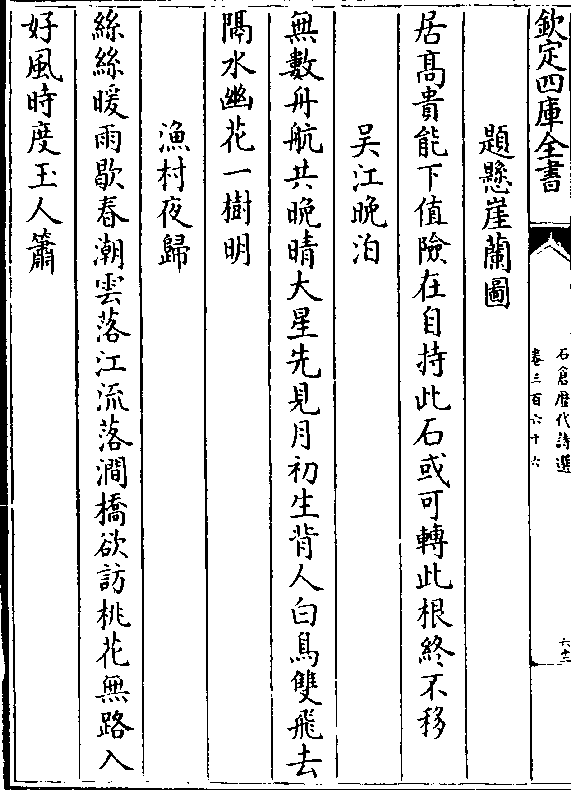 欽定四庫全書
石倉歴代詩選
卷三百六十六
六十二
題懸崖蘭圖
居高貴能下值險在自持此石或可轉此根終不移
吴江晚泊
無數舟航共晚晴大星先見月初生背人白鳥雙飛去
隔水幽花一樹明
漁村夜歸
絲絲暖雨歇春潮雲落江流落澗橋欲訪桃花無路入
好風時度玉人簫